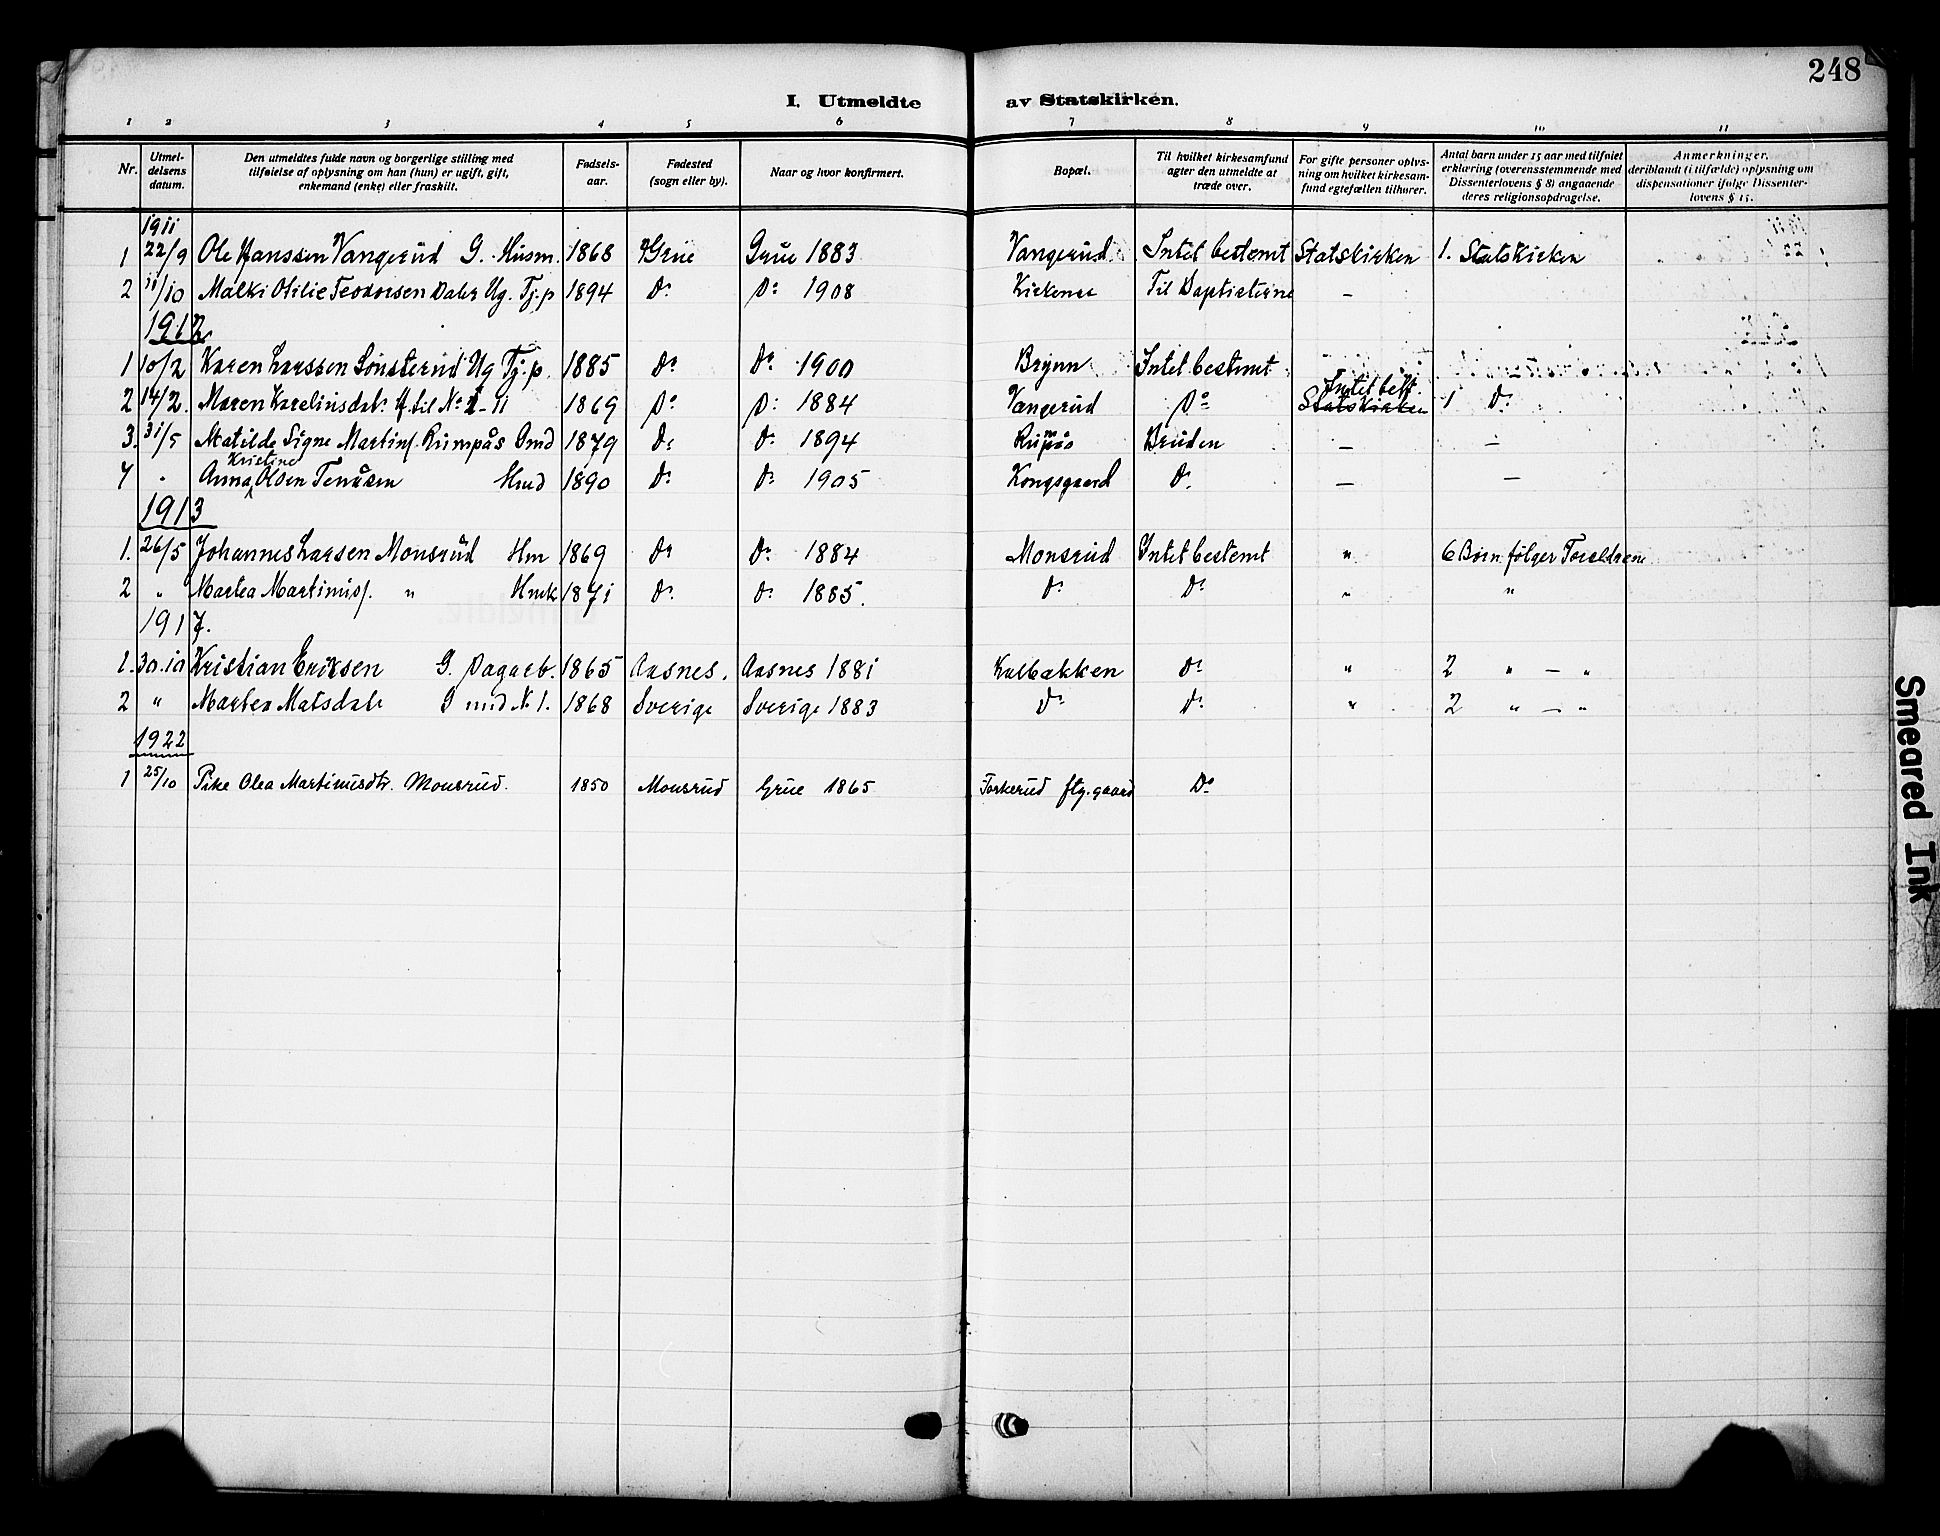 248
I. Utmeldte av Statskirken.
1 2 3 4 5 6 7 8 9 10 11
Nr.
Utmel-
delsens
datum.
Den utmeldtes fulde navn og borgerlige stilling med
tilføielse af oplysning om han (hun) er ugift, gift,
enkemand (enke) eller fraskilt.
Fødsels-
aar.
Fødested
(sogn eller by).
Naar og hvor konfirmert.
Bopæl.
Til hvilket kirkesamfund
agter den utmeldte at
træde over.
For gifte personer oplys-
ning om hvilket kirkesam-
fund egtefællen tilhører.
Antal barn under 15 aar med tilføiet
erklæring (overensstemmende med
Dissenterlovens § 8) angaaende
deres religionsopdragelse.
Anmerkninger,
deriblandt (i tilfælde) oplysning om
dispensationer ifølge Dissenter-
lovens § 15.
1911
1 22/9 Ole Hanssen Vangerud G. Husm. 1868 Grue Grue 1883 Vangerud Intet bestemt Statskirken 1. Statskirken
2 11/10 Malki Otilie Teodorsen Daler Ug. Tj.p 1894 Do Do 1908 Kirkener Til Baptisterne –
1912
1 10/2 Karen Larssen Sønsterud Ug Tj.p. 1885 Do Do 1900 Brynn Intet bestemt –
2 14/2. Maren Karelinsdatr G. til No 1-11 1869 Do Do 1884 Vangerud Do Intet best. Statskirken 1 Do
3. 31/5 Matilde Signe Martins. Rumpås Gmd 1879 Do Do 1894 Rumpås Bruden – –
4 " Anna Kristine Olsen Hmd 1890 Do Do 1905 Kongsgaard Do – –
1913
1. 26/5 Johannes Larsen Monsrud Hm 1869 Do Do 1884 Monsrud Intet bestemt " 6 Børn følger Foreldrene
2 " Martea Martinus. " Hmk 1871 Do Do 1885. Do Do " "
1917.
1. 30.10 Kristian Eriksen G. Dagarb. 1865 Aasnes. Aasnes 1881 Kalbakken Do " 2 " – "
2 " Martea Matsdatr G med No 1. 1868 Sverige Sverige 1883 Do Do " 2 " – "
1922
1 25/10 Pike Olea Martinusdtr. Monsrud. 1850 Monsrud Grue 1865 Torkerud fty.gaard Do
Smeared Ink